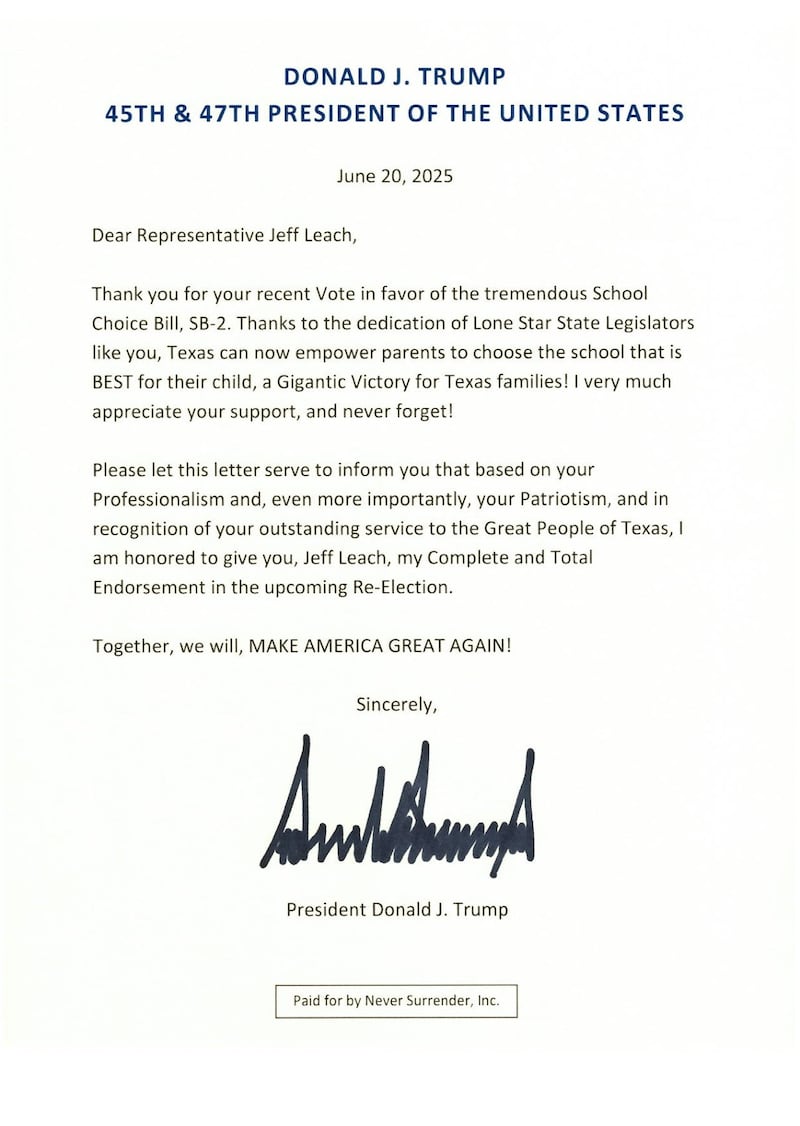 DONALD J. TRUMP
45TH & 47TH PRESIDENT OF THE UNITED STATES
June 20, 2025
Dear Representative Jeff Leach,
Thank you for your recent Vote in favor of the tremendous School
Choice Bill, SB-2. Thanks to the dedication of Lone Star State Legislators
like you, Texas can now empower parents to choose the school that is
BEST for their child, a Gigantic Victory for Texas families! I very much
appreciate your support, and never forget!
Please let this letter serve to inform you that based on your
Professionalism and, even more importantly, your Patriotism, and in
recognition of your outstanding service to the Great People of Texas, I
am honored to give you, Jeff Leach, my Complete and Total
Endorsement in the upcoming Re-Election.
Together, we will, MAKE AMERICA GREAT AGAIN!
Sincerely,
President Donald J. Trump
Paid for by Never Surrender, Inc.